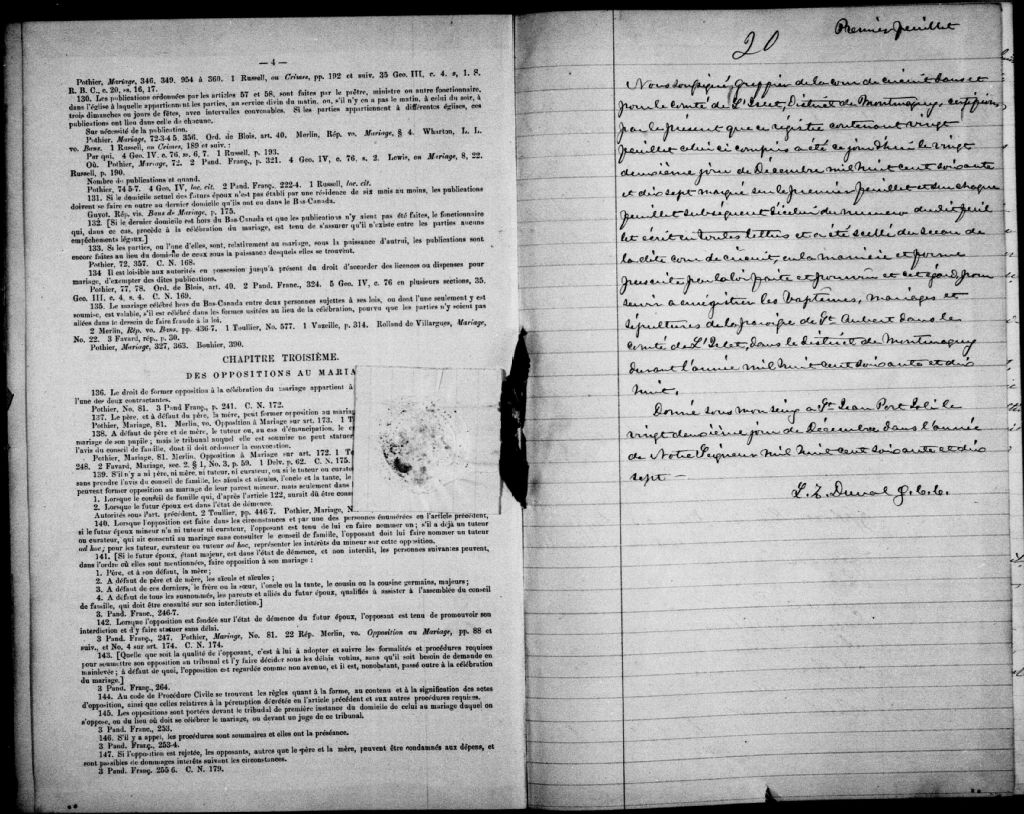 — 4 —
Pothier, Mariage, 346, 349, 954 à 360. 1 Russell, ou Crimes, pp. 192 et suiv. 35 Geo. III, c. 4. s, 1. 8.
R. B. C., c. 20, ss. 16, 17.
130. Les publications ordonnées par les articles 57 et 58, sont faites par le prêtre, ministre ou autre fonctionnaire,
dans l'église à laquelle appartiennent les parties, au service divin du matin, ou, s'il n'y en a pas le matin, à celui du soir, à
trois dimanches ou jours de fêtes, avec intervalles convenables. Si les parties appartiennent à différentes églises, ces
publications ont lieu dans celle de chacune.
Sur nécessité de la publication.
Pothier, Mariage, 72-3-4 5 356. Ord. de Blois, art. 40. Merlin, Rép. vo. Mariage, § 4. Wharton, L. L.
vo. Bans. 1 Russell, on Crimes, 189 et suiv :
Par qui. 4 Geo. IV. c. 76, ss, 6, 7. 1 Russell, p. 193.
Où. Pothier, Mariage, 72. 2 Pand. Franç. p. 321. 4 Geo. IV, c. 76, s. 2. Lewis, on Mariage, 8, 22.
Russell, p. 190.
Nombre de publications et quand.
Pothier, 74 5-7. 4 Geo, IV, loc. cit. 2 Pand. Franç. 222-4. 1 Russell, loc. cit.
131. Si le domicile actuel des futurs époux n'est pas établi par une résidence de six mois au moins, les publications
doivent se faire en outre au dernier domicile qu'ils ont eu dans le Bas-Canada.
Guyot. Rép. vis. Bans de Mariage, p. 175.
132. [Si le dernier domicile est hors du Bas-Canada et que les publications n'y aient pas été faites, le fonctionnaire
qui, dans ce cas, procède à la célébration du mariage, est tenu de s'assurer qu'il n'existe entre les parties aucuns
empêchements légaux.]
133. Si les parties, ou l'une d'elles, sont, relativement au mariage, sous la puissance d'autrui, les publications sont
encore faites au lieu du domicile de ceux sous la puissance desquels elles se trouvent.
Pothier, 72, 357. C. N. 168.
134 Il est loisible aux autorités en possession jusqu'à présent du droit d'accorder des licences ou dispenses pour
mariage, d'exempter des dites publications.
Pothier, 77, 78. Ord. de Blois, art. 40. 2 Pand. Franç., 324. 5 Geo IV, c. 76 en plusieurs sections, 35.
Geo. III. c. 4, s. 4. C. N. 169.
135. Le mariage célébré hors du Bas-Canada entre deux personnes sujettes à ses lois, ou dont l'une seulement y est
soumise, est valable, s'il est célébré dans les formes usitées au lieu de la célébration, pourvu que les parties n'y soient pas
allées dans le dessein de faire fraude à la loi.
2 Merlin, Rép. vo. Bans, pp. 436-7. 1 Toullier, No. 577. 1 Vazeille, p. 314. Rolland de Villargues, Mariage,
No. 22. 3 Favard, rép., p. 30.
Pothier, Mariage, 327, 363. Bouhier, 390.
CHAPITRE TROISIÈME.
DES OPPOSITIONS AU MARIA
136. Le droit de former opposition à la célébration du mariage appartient à
l'une des deux contractantes.
Pothier, No. 81. 3 Pand Franç., p. 241. C. N. 172.
137. Le père, et à défaut du père, la mère, peut former opposition au mariag
Pothier, Mariage, 81. Merlin, vo. Opposition à Mariage sur art. 173. 1 T
138. A défaut de père et de mère, le tuteur ou, au cas d'émancipation, le c
mariage de son pupile ; mais le tribunal auquel elle est soumise ne peut statuer
l'avis du conseil de famille, dont il doit ordonner la convocation.
Pothier, Mariage, 81. Merlin, Opposition à Mariage sur art. 172. 1 T
248. 2 Favard, Mariage, sec. 2. § 1, No. 3, p. 59. 1 Delv. p. 62. C. N. 175.
139. S'il n'y a ni père, ni mère, ni tuteur, ni curateur, ou si le tuteur ou curate
sans prendre l'avis du conseil de famille, les aïeuls et aïeules, l'oncle et la tante, le
peuvent former opposition au mariage de leur parent mineur, mais seulement dans
1. Lorsque le conseil de famille qui, d'après l'article 122, aurait dû être cons
2. Lorsque le futur époux est dans l'état de démence.
Autorités sous l'art. précédent. 2 Toullier, pp. 446-7. Pothier, Mariage, N
140. Lorsque l'opposition est faite dans les circonstances et par une des personnes énumérées en l'article précédent,
si le futur époux mineur n'a ni tuteur ni curateur, l'opposant est tenu de lui en faire nommer un ; s'il a déjà un tuteur
ou curateur, qui ait consenti au mariage sans consulter le conseil de famille, l'opposant doit lui faire nommer un tuteur
ad hoc ; pour les tuteur, curateur ou tuteur ad hoc, représenter les intérêts du mineur sur cette opposition.
141. [Si le futur époux, étant majeur, est dans l'état de démence, et non interdit, les personnes suivantes peuvent,
dans l'ordre où elles sont mentionnées, faire opposition à son mariage :
1. Père, et à son défaut, la mère ;
2. A défaut de père et de mère, les aïeuls et aïeules ;
3. A défaut de ces derniers, le frère ou la sœur, l'oncle ou la tante, le cousin ou la cousine germains, majeurs ;
4. A défaut de tous les susnommés, les parents et alliés du futur époux, qualifiés à assister à l'assemblée du conseil
de famille, qui doit être consulté sur son interdiction.]
3. Pand. Franç., 246-7.
142. Lorsque l'opposition est fondée sur l'état de démence du futur époux, l'opposant est tenu de promouvoir son
interdiction et d'y faire statuer sans délai.
3 Pand. Franç., 247. Pothier, Mariage, No. 81. 22 Rép. Merlin, vo. Opposition au Mariage, pp. 88 et
suiv., et No. 4 sur art. 174. C. N. 174.
143. [Quelle que soit la qualité de l'opposant, c'est à lui à adopter et suivre les formalités et procédures requises
pour soumettre son opposition au tribunal et l'y faire décider sous les délais voulus, sans qu'il soit besoin de demande en
mainlevée ; à défaut de quoi, l'opposition est regardée comme non avenue, et il est, nonobstant, passé outre à la célébration
du mariage.]
3 Pand. Franç., 264.
144. Au code de Procédure Civile se trouvent les règles quant à la forme, au contenu et à la signification des actes
d'opposition, ainsi que celles relatives à la péremption décrétée en l'article précédent et aux autres procédures requises.
145. Les oppositions sont portées devant le tribunal de première instance du domicile de celui au mariage duquel on
s'oppose, ou du lieu où doit se célébrer le mariage, ou devant un juge de ce tribunal.
3 Pand. Franç., 253.
146. S'il y a appel, les procédures sont sommaires et elles ont la préséance.
3 Pand. Franç., 253-4.
147. Si l'opposition est rejetée, les opposants, autres que le père et la mère, peuvent être condamnés aux dépens, et
sont passibles de dommages intérêts suivant les circonstances.
3 Pand. Franç. 255 6. C. N. 179.
20
Premier feuillet
Nous soussigné, greffier de la cour de circuit dans et
pour le comté de L'Islet, District de Montmagny, certifions
par le présent que ce régistre contenant vingt
feuillet celui ci compris a été ce jourd'hui le vingt
deuxième jour de Décembre mil huit cent soixante
et dix sept marqué sur le premier feuillet et sur chaque
feuillet subséquent d'icelui du numero du dit feuil
let écrit en toutes lettres et a été scellé du Sceau de
la dite cour de circuit, en la manière et forme
prescrite par la loi faite et pourvue à cet égard, pour
servir a enrégistrer les Baptemes, mariages et
sépultures de la paroisse de St. Aubert dans le
comté de L'Islet, dans le district de Montmagny
durant l'année mil huit cent soixante et dix
huit.
Donné sous mon seing a St Jean Port Joli le
vingt deuxième jour de Décembre dans l'année
de Notre Seigneur mil huit cent soixante et dix
sept
L. Z. Duval g. c. c.